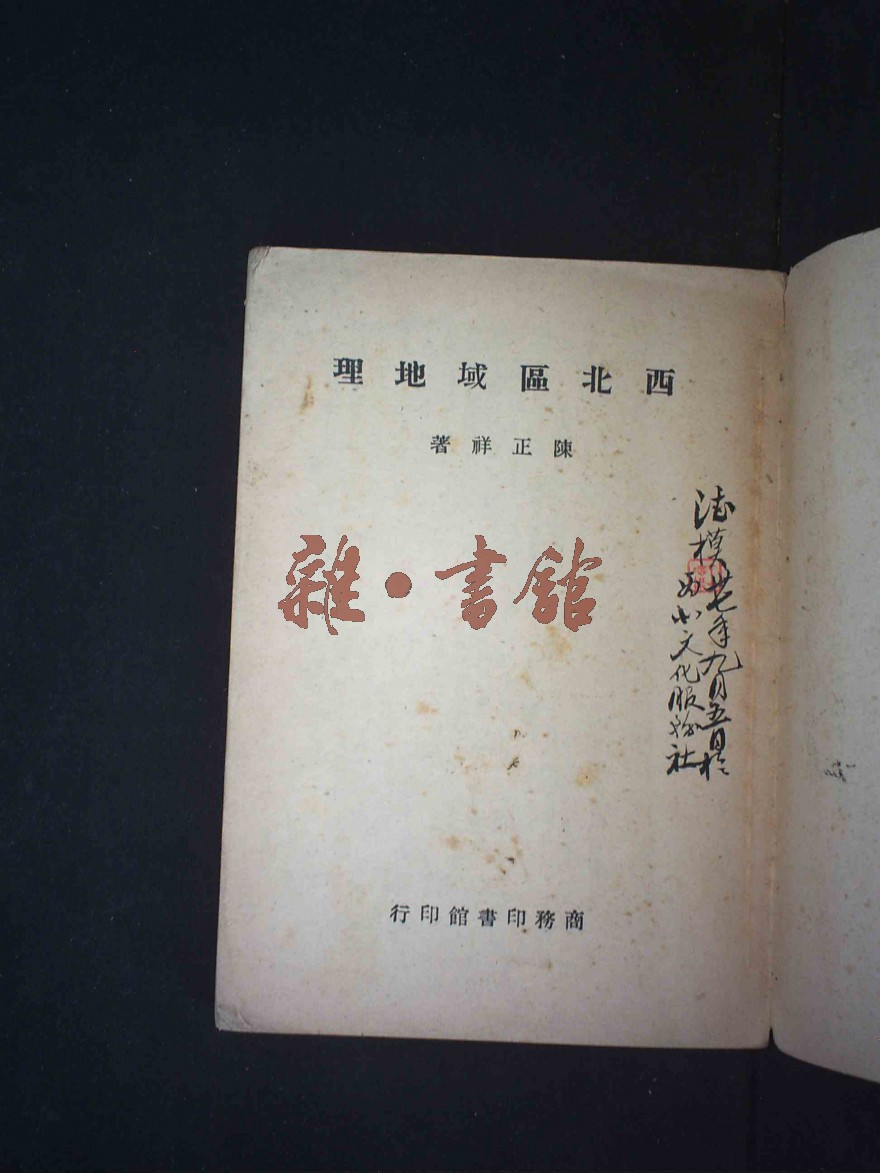 西北區域地理
陳正祥著
雜·書館
模
卅七年九月五日於
西北文化服務社
商務印書館印行